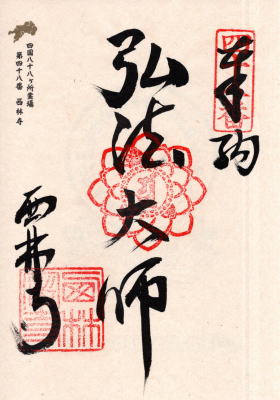 奉納
弘法大師
西林寺
四国八十八ヶ所霊場
第四十八番 西林寺